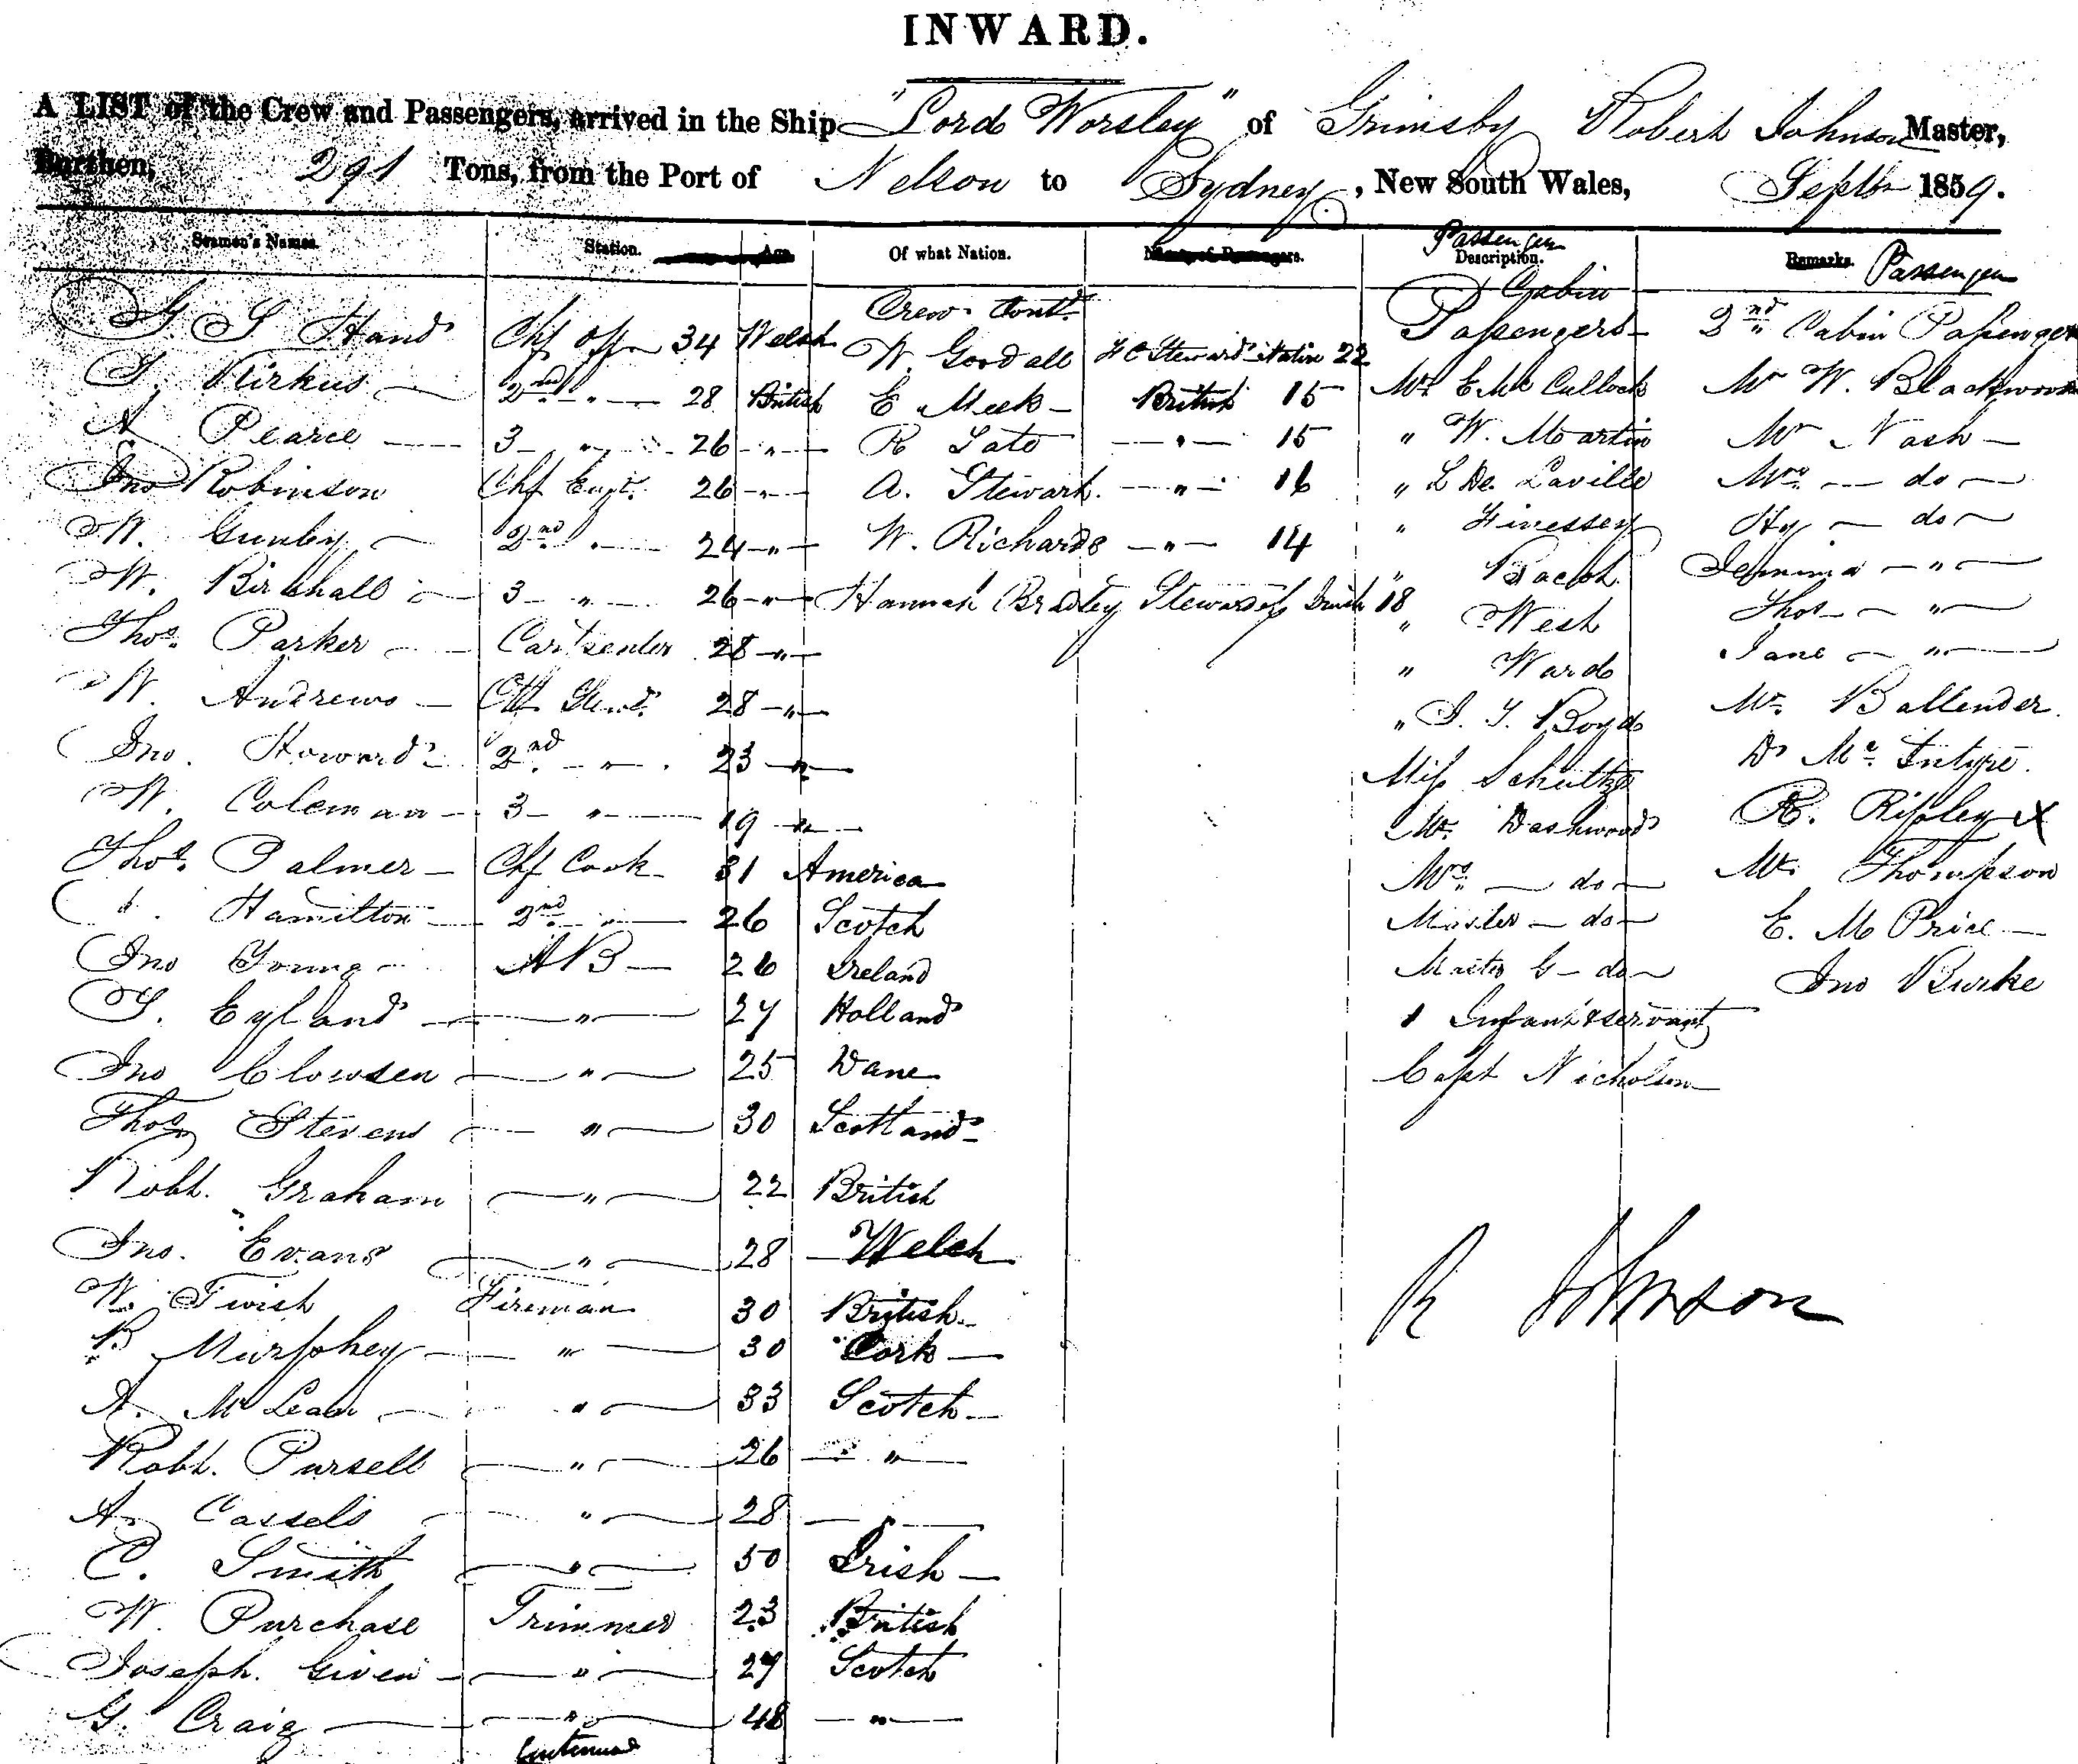 INWARD.
A LIST of the Crew and Passengers, arrived in the Ship "Lord Worsley" of Grimsby Robert Johnson Master,
Burthen, 291 Tons, from the Port of Nelson to Sydney, New South Wales, Septbr 1859.
Seamen's Names. Station. Age Of what Nation. Names of Passengers. Passenger Description. Remarks. Passenger
G S Hand Chf Offr 34 Welsh
J. Kirkus 2nd " 28 British
A Pearce 3 " 26 "
Jno Robinson Chf Engr. 26 "
W. Gunby 2nd " 24 "
W. Birkhall 3 " 26 "
Thos. Parker Carpenter 28 "
W. Andrews Chf Stewd. 28 "
Jno. Howard 2nd " 23 "
W. Coleman 3 " 19 "
Thos. Palmer Chf Cook 31 America
Hamilton 2nd " 26 Scotch
Jno Young AB 26 Ireland
Eyland " 27 Holland
Jno Clowsen " 25 Dane
Thos Stevens " 30 Scotland
Robt. Graham " 22 British
Jno. Evans " 28 Welch
W. Twish Fireman 30 British
Murphey " 30 Cork
A. McLean " 33 Scotch
Robt. Pursell " 26 "
A. Cassels " 28 "
C. Smith " 50 Irish
W. Purchase Trimmer 23 British
Joseph. Given " 27 Scotch
G. Craig " 48 "
Continued
Crew Contd.
W. Goodall F C Steward Native 22
E Meek British 15
R Tate " 15
A. Stewart. " 16
W. Richards " 14
Hannah Bradley Stewardess Irish 18
Cabin
Passengers
Mr E McCullock
" W. Martin
" L De Laville
" Finessey
"
" West
" Ward
" Boyd
Miss Schultze
Mr. Dashwood
Mrs. do
Master do
Master G do
1 Infant & servant
Capt Nicholson
2nd Cabin Passenger
Mr W. Blackwood
Mr Nash
Mrs. do
Hy do
Jemima "
Thos "
Jane "
Mr. Ballender.
Dr McIntyre.
R. Ripley X
Mr. Thompson
E. M Price
Jno Burke
R Johnson